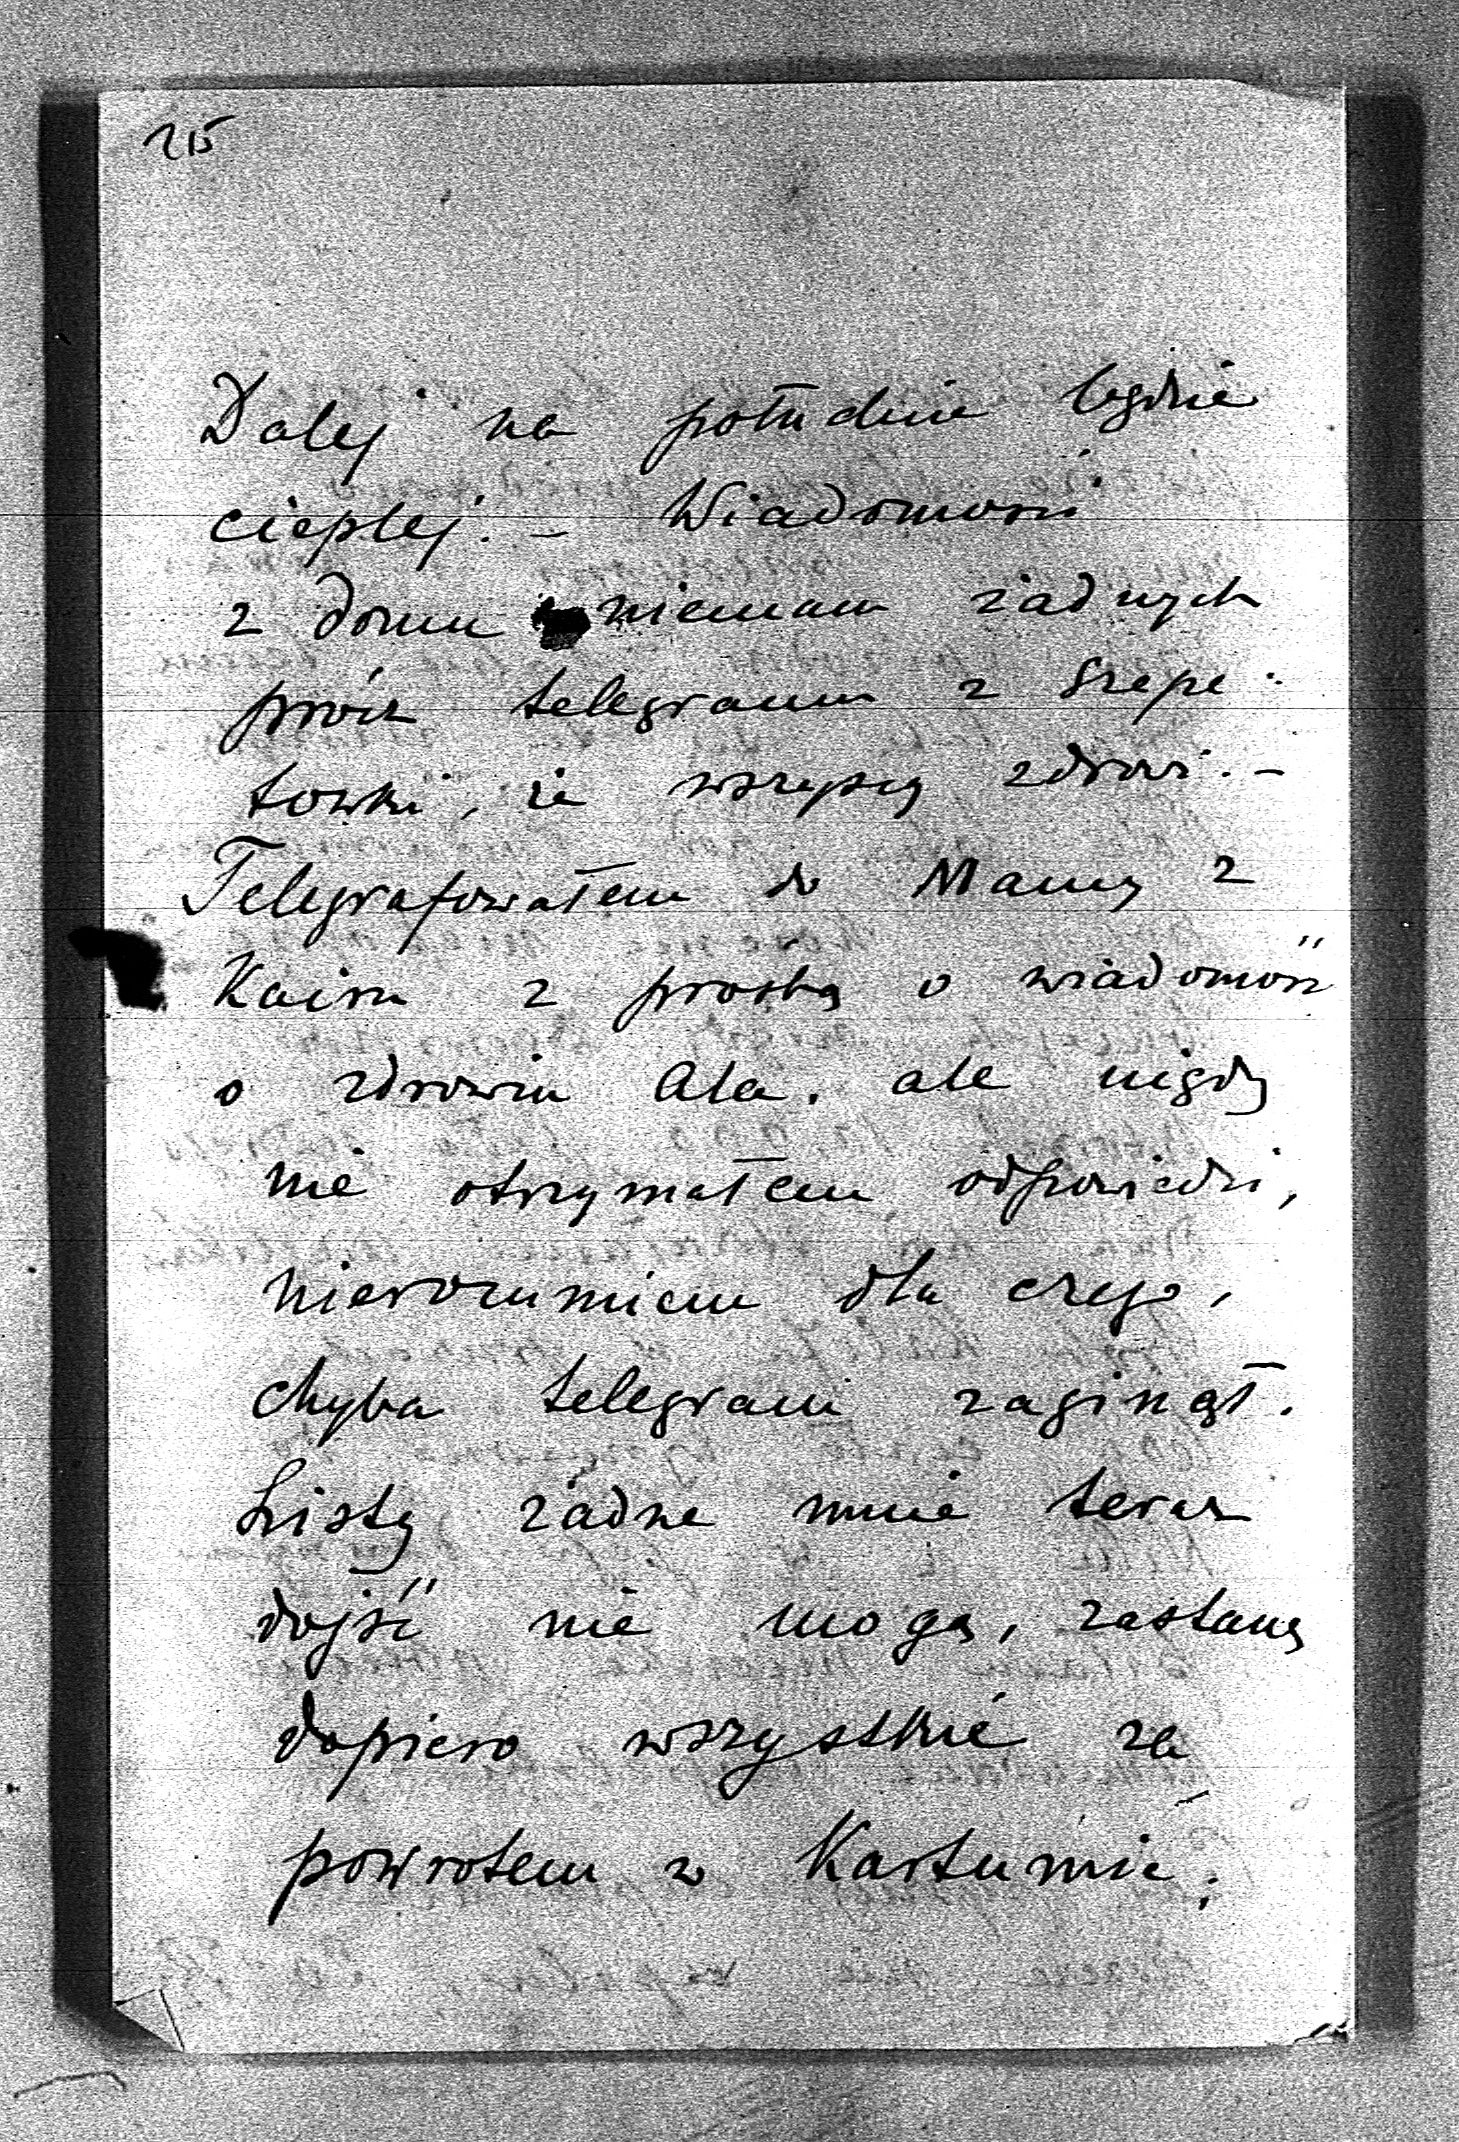 215
Dalej na południe będzie
cieplej. – Wiadomości
z domu niemam żadnych
prócz telegramu z Szepe-
towki, że wszyscy zdrowi. –
Telegrafowałem do Mamy z
Kairu z prośbą o wiadomość
o zdrowiu Ala, ale nigdy
nie otrzymałem odpowiedzi,
nierozumiem dla czego,
chyba telegram zaginął.
Listy żadne mnie teraz
dojść nie mogą, zastanę
dopiero wszystkie za
powrotem w Kartumie;